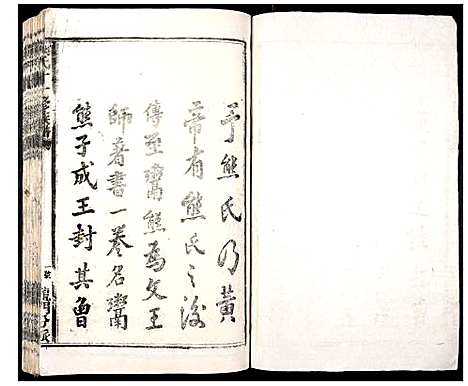 予熊氏乃黄
帝有熊氏之後
傳至鬻熊為文王
師著書一卷名鬻
熊子成王封其曾